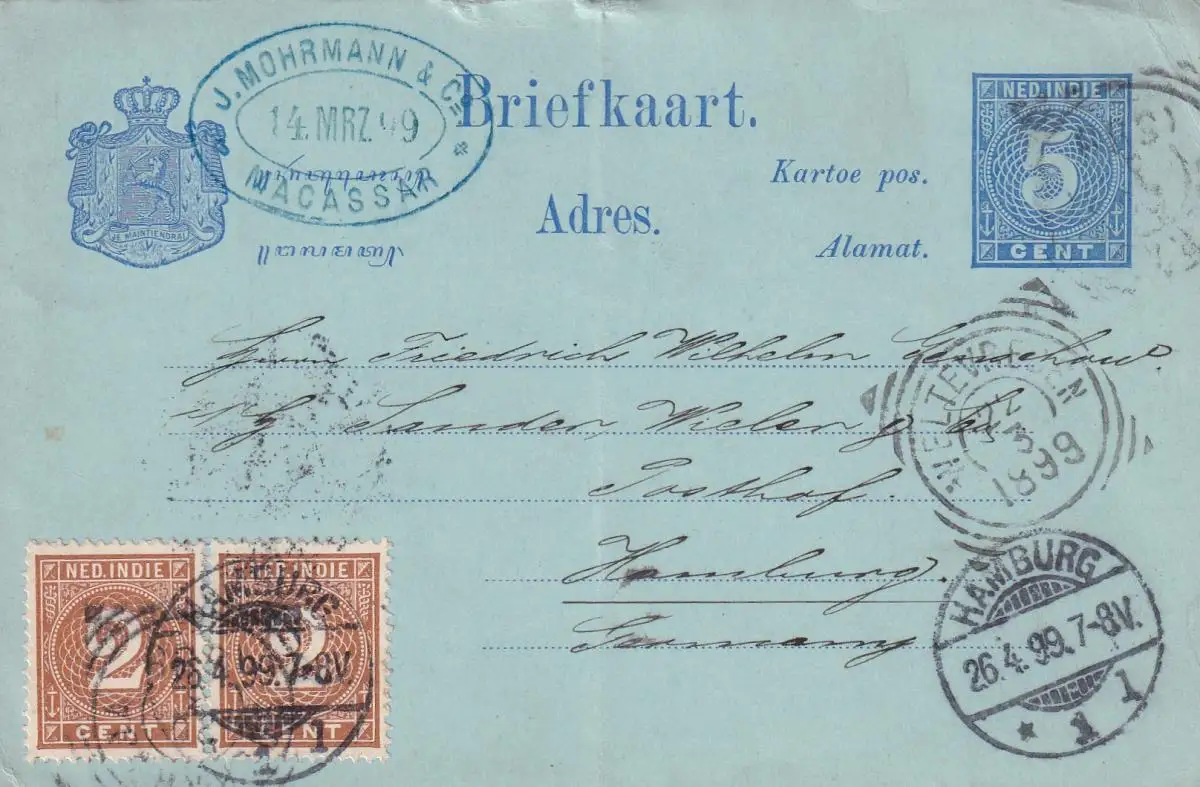 J. MOHRMANN & Co
14. MRZ. 99
MACASSAR
Briefkaart.
JE MAINTIENDRAI
Kartoe pos.
Adres.
Alamat.
NED. INDIE
5
CENT
Herrn Friedrich Wilhelm
Sander, Wieler & Co.
Posthof.
Hamburg.
Germany
WELTEVREDEN
1899
HAMBURG
26.4.99. 7-8V.
* 1 1
NED. INDIE
2
CENT
NED. INDIE
2
CENT
HAMBURG
26.4.99. 7-8V
1